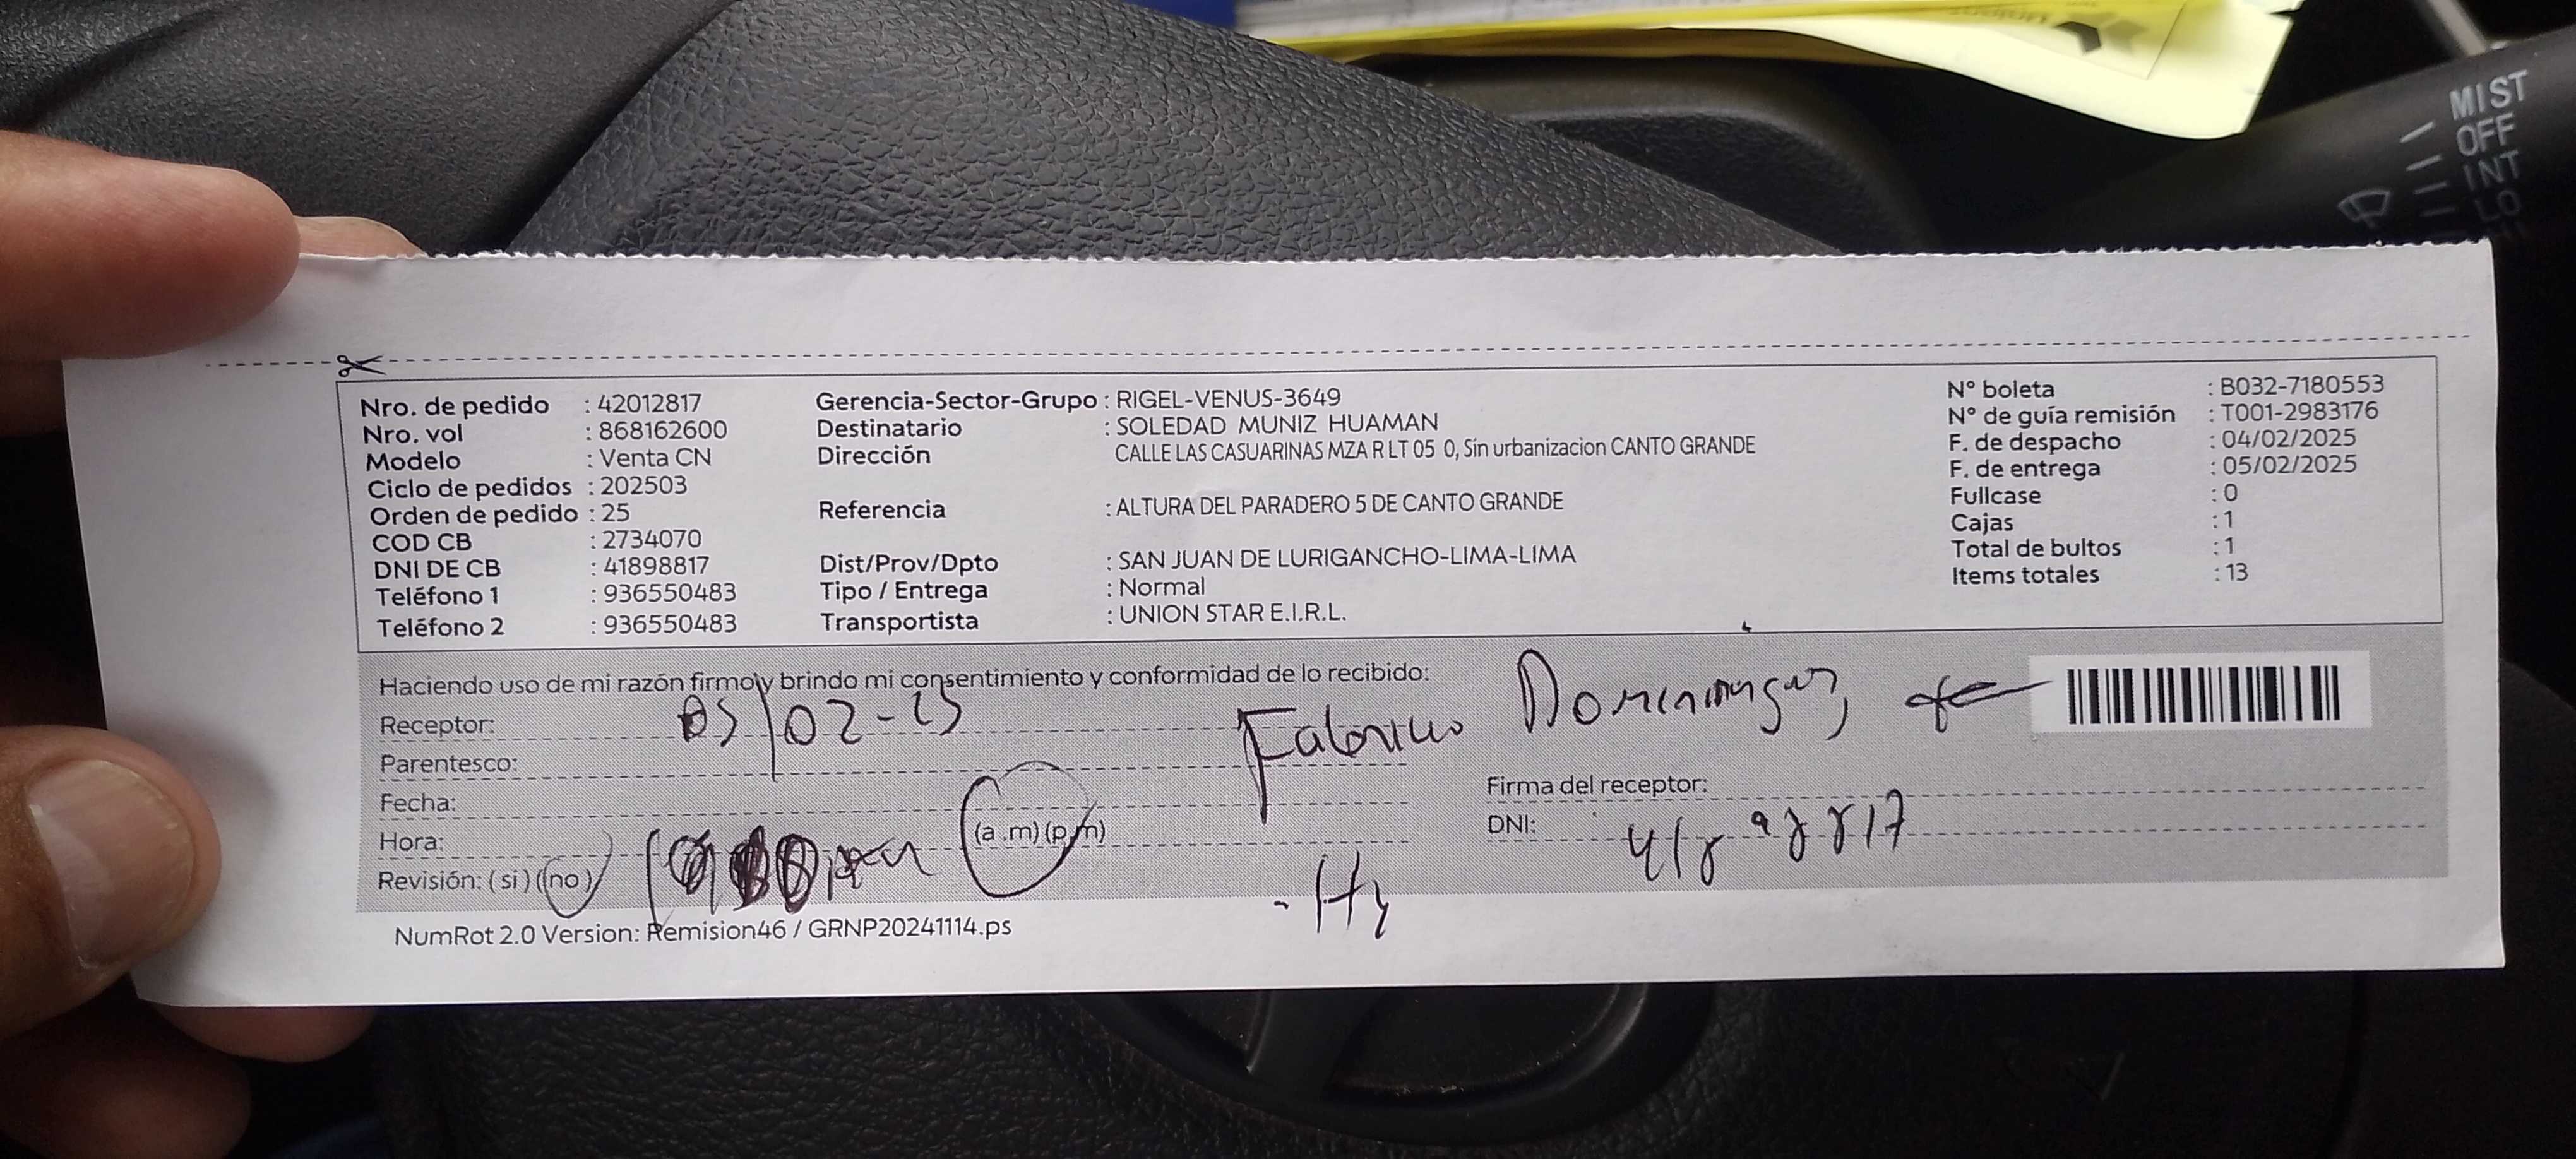 MIST
OFF
INT
LO
Nro. de pedido : 42012817
Nro. vol : 868162600
Modelo : Venta CN
Ciclo de pedidos : 202503
Orden de pedido : 25
COD CB : 2734070
DNI DE CB : 41898817
Teléfono 1 : 936550483
Teléfono 2 : 936550483
Gerencia-Sector-Grupo : RIGEL-VENUS-3649
Destinatario : SOLEDAD MUNIZ HUAMAN
Dirección CALLE LAS CASUARINAS MZA R LT 05 0, Sin urbanizacion CANTO GRANDE
Referencia : ALTURA DEL PARADERO 5 DE CANTO GRANDE
Dist/Prov/Dpto : SAN JUAN DE LURIGANCHO-LIMA-LIMA
Tipo / Entrega : Normal
Transportista : UNION STAR E.I.R.L.
N° boleta : B032-7180553
N° de guía remisión : T001-2983176
F. de despacho : 04/02/2025
F. de entrega : 05/02/2025
Fullcase : 0
Cajas : 1
Total de bultos : 1
Items totales : 13
Haciendo uso de mi razón firmo y brindo mi consentimiento y conformidad de lo recibido:
Receptor: 05/02-25
Parentesco:
Fecha:
Hora: (a .m) (p.m)
Revisión: ( si ) ( no )
Firma del receptor:
DNI: 41898817
NumRot 2.0 Version: Remision46 / GRNP20241114.ps